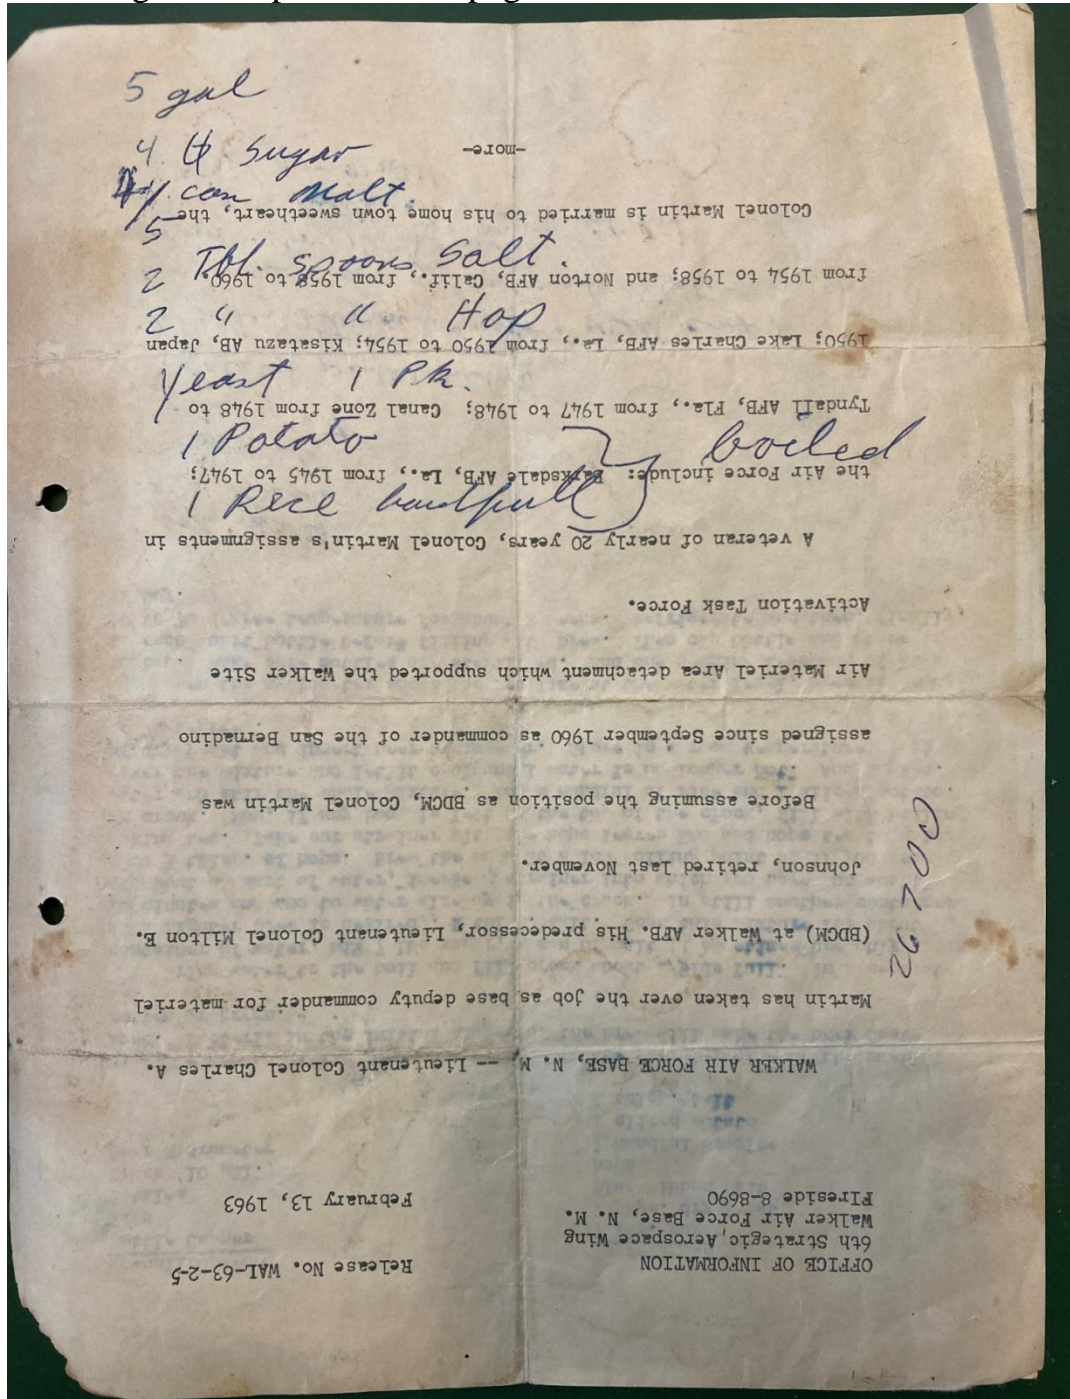 5 gal
4 # Sugar
1 can Malt.
5
2 Tbl. spoons Salt.
2 " " Hop
Yeast 1 Pk.
1 Potato
boiled
1 Rice handfull
26 700
OFFICE OF INFORMATION
6th Strategic Aerospace Wing
Walker Air Force Base, N. M.
FIreside 8-8690
Release No. WAL-63-2-5
February 13, 1963
WALKER AIR FORCE BASE, N. M. -- Lieutenant Colonel Charles A.
Martin has taken over the job as base deputy commander for materiel
(BDCM) at Walker AFB. His predecessor, Lieutenant Colonel Milton E.
Johnson, retired last November.
Before assuming the position as BDCM, Colonel Martin was
assigned since September 1960 as commander of the San Bernadino
Air Materiel Area detachment which supported the Walker Site
Activation Task Force.
A veteran of nearly 20 years, Colonel Martin's assignments in
the Air Force include: Barksdale AFB, La., from 1945 to 1947;
Tyndall AFB, Fla., from 1947 to 1948; Canal Zone from 1948 to
1950; Lake Charles AFB, La., from 1950 to 1954; Kisatazu AB, Japan
from 1954 to 1958; and Norton AFB, Calif., from 1958 to 1960.
Colonel Martin is married to his home town sweetheart, the
-more-